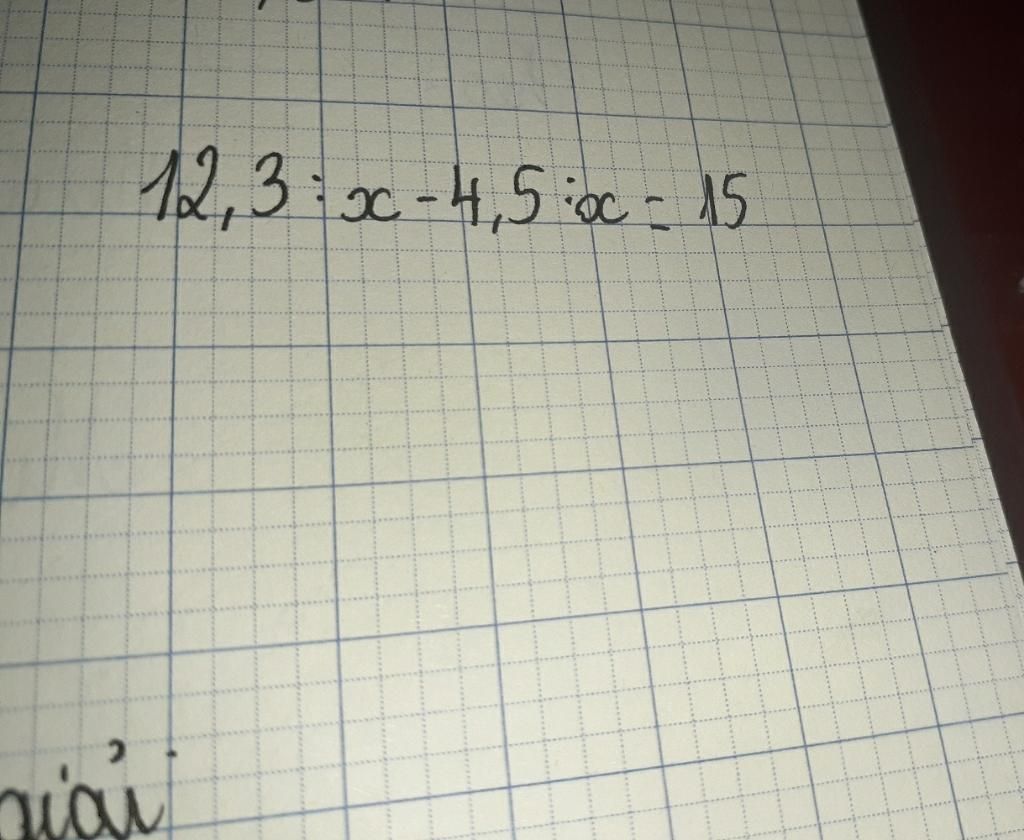 12,3 : x - 4,5 : x = 15
giải